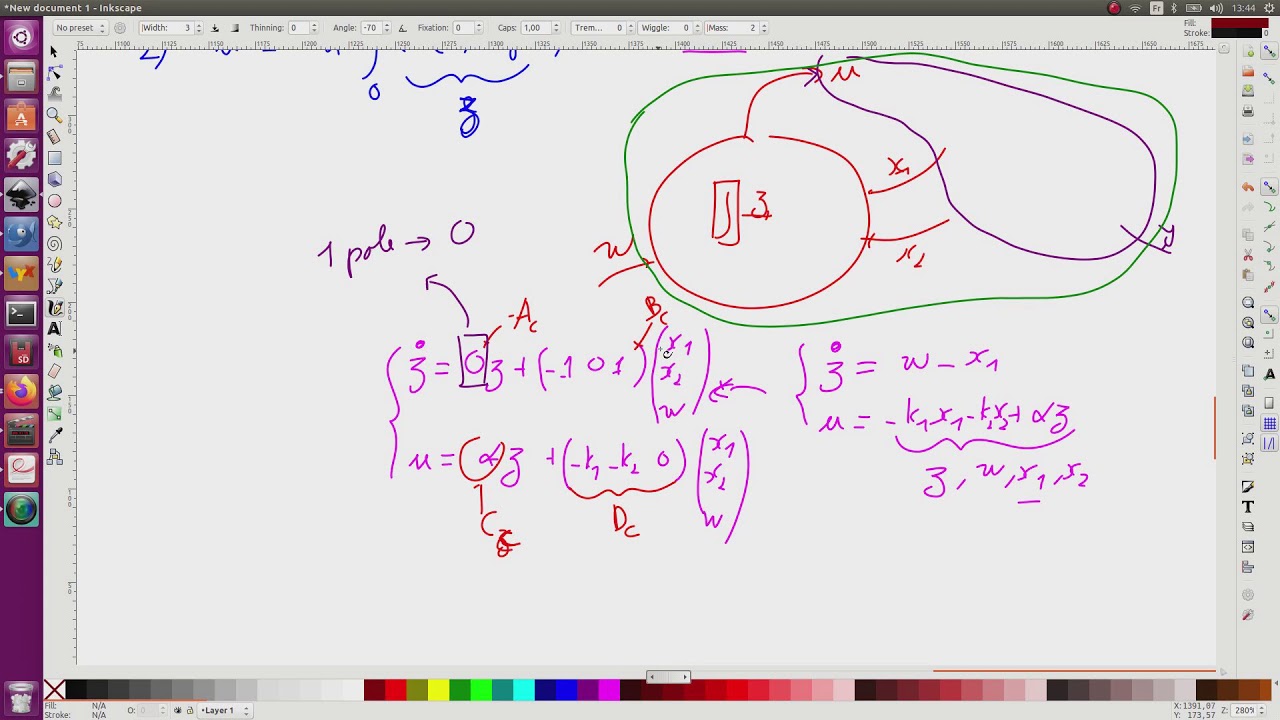 *New document 1 - Inkscape
Fr
13:44
No preset
Width: 3
Thinning: 0
Angle: -70
Fixation: 0
Caps: 1,00
Trem... 0
Wiggle: 0
Mass: 2
Fill:
Stroke: 0
0
z
u
x1
x2
∫ z
w
y
1 pole → 0
-Ac
Bc
ż = 0z + (-1 0 1) (x1 x2 w)
u = αz + (-k1 -k2 0) (x1 x2 w)
C
Dc
ż = w - x1
u = -k1x1 - k2x2 + αz
z, w, x1, x2
Fill: N/A
Stroke: N/A
O: 0
Layer 1
X:1391,07
Y: 173,57
Z: 280%